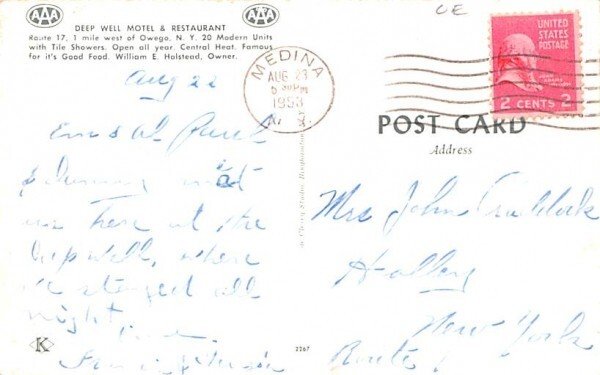 AAA
AAA
DEEP WELL MOTEL & RESTAURANT
Route 17, 1 mile west of Owego, N. Y. 20 Modern Units
with Tile Showers. Open all year. Central Heat. Famous
for it's Good Food. William E. Halstead, Owner.
CE
MEDINA
AUG 23
PM
1953
UNITED
STATES
POSTAGE
2 CENTS 2
POST CARD
Address
Aug 22
Em & Al
us here at the
Deep Well, where
we stayed all
night.
Mrs John Craddock
Holley
New York
Route 1
K
2267